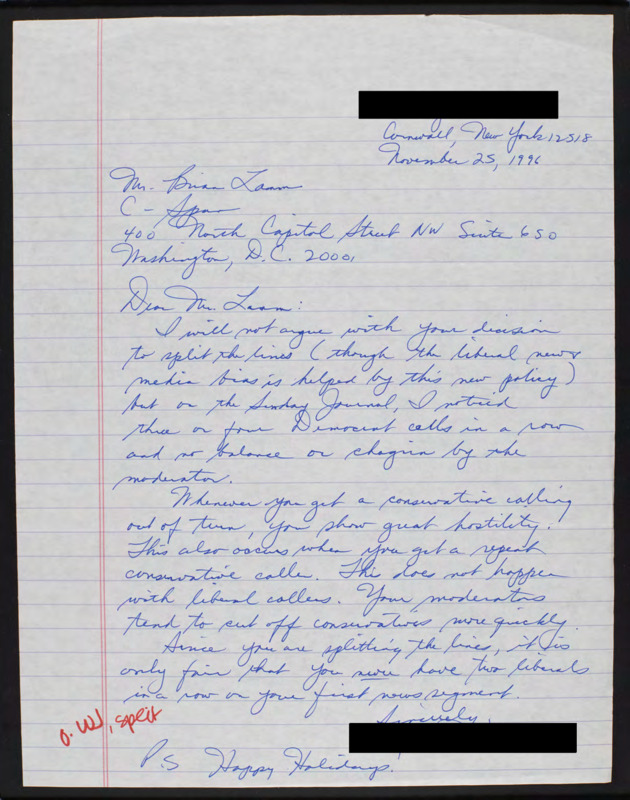 Cornwall, New York 12518
November 25, 1996
Mr. Brian Lamm
C-Span
400 North Capitol Street NW Suite 650
Washington, D.C. 20001
Dear Mr. Lamm:
I will not argue with your decision
to split the lines (though the liberal news
media bias is helped by this new policy)
but on the Sunday Journal, I noticed
three or four Democrat calls in a row
and no balance or chagrin by the
moderator.
Whenever you get a conservative calling
out of turn, you show great hostility.
This also occurs when you get a repeat
conservative caller. This does not happen
with liberal callers. Your moderators
tend to cut off conservatives more quickly.
Since you are splitting the lines, it is
only fair that you never have two liberals
in a row on your first news segment.
Sincerely,
O. WJ, split
P.S Happy Holidays!